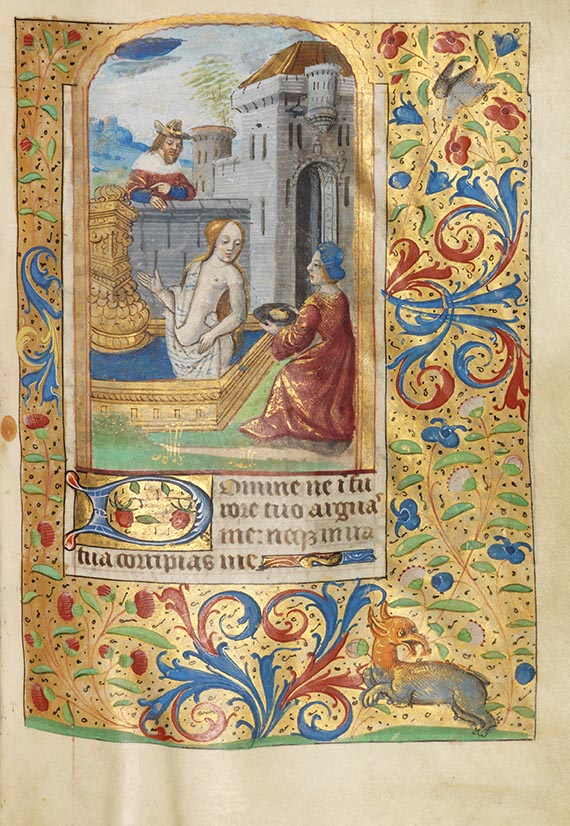 Domine ne ĩ fu
rore tuo arguaˢ
me: neqꝫ in ira
tua corripias me